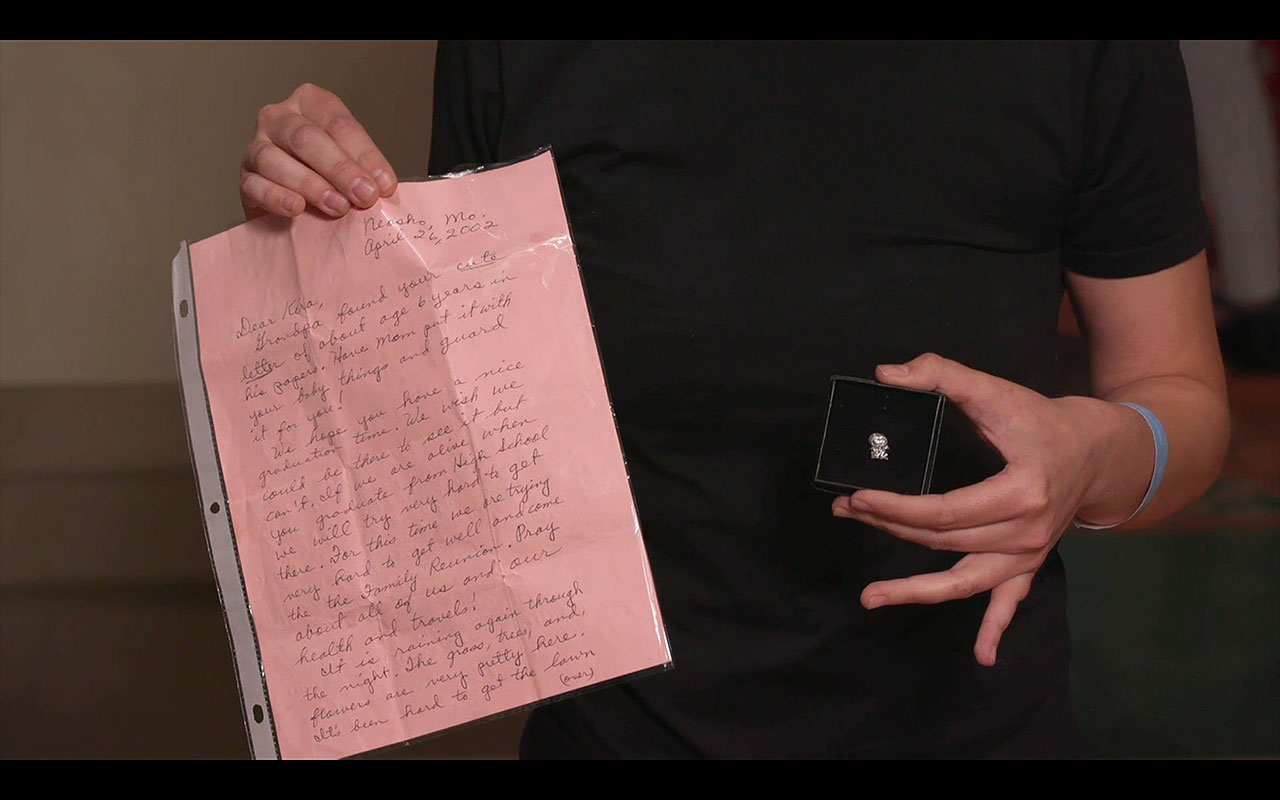 Neosho, Mo.
April 26, 2002
Dear Kira,
Grandpa found your cute
letter of about age 6 years in
his papers. Have Mom put it with
your baby things and guard
it for you!
We hope you have a nice
graduation time. We wish we
could be there to see it but
can't. If we are alive when
you graduate from High School
we will try very hard to get
there. For this time we are trying
very hard to get well and come
the the Family Reunion. Pray
about all of us and our
health and travels!
It is raining again through
the night. The grass, trees, and,
flowers are very pretty here.
It's been hard to get the lawn
(over)